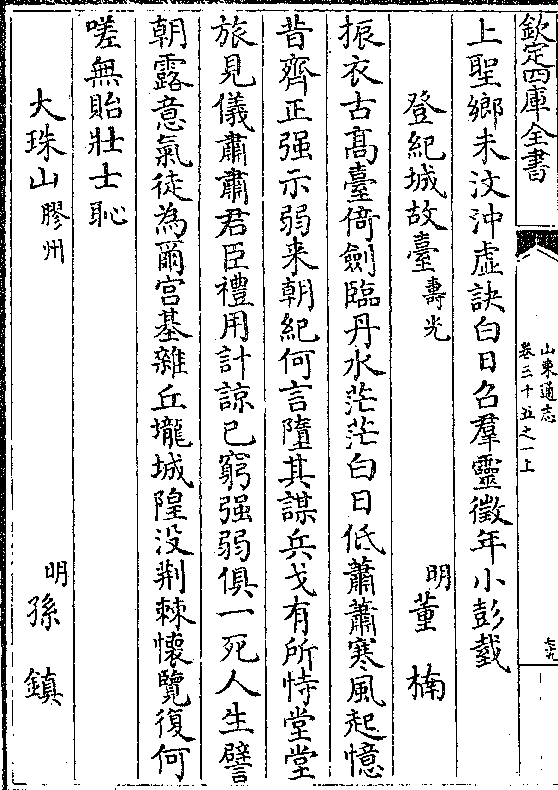 欽定四庫全書
山東通志
卷三十五之一上
六九
上聖鄉未汶沖虛訣白日召羣靈徵年小彭㦸
登紀城故臺壽光
明董楠
振衣古髙臺倚劍臨丹水茫茫白日低蕭蕭寒風起憶
昔齊正强示弱来朝紀何言墮其謀兵戈有所恃堂堂
旅見儀肅肅君臣禮用計諒已窮强弱俱一死人生譬
朝露意氣徒為爾宫基雜丘壠城隍没荆棘懷覽復何
嗟無貽壯士恥
大珠山膠州
明孫鎮